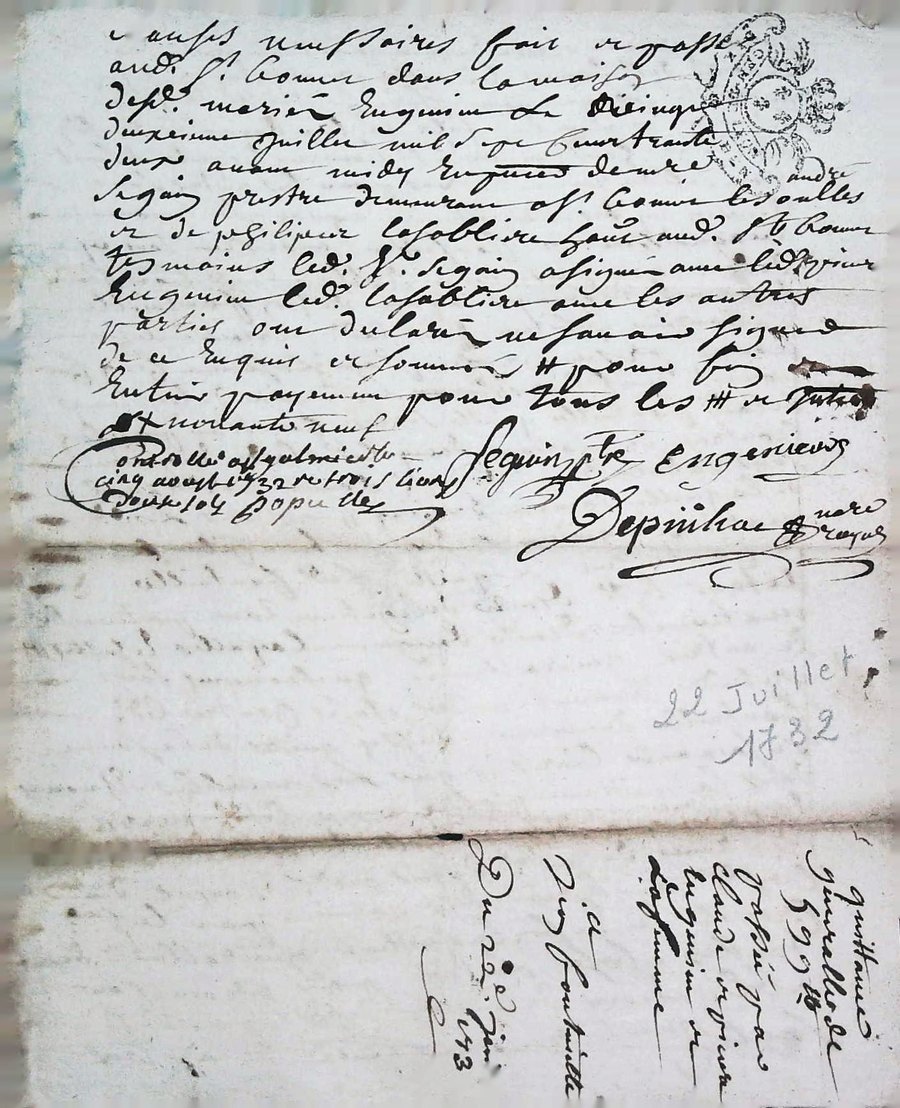 clauses necessaires fait et passé
aud. St. Bonnet dans la maison
desd. mariés Engenieu le vingt
deuxieme Juillet mil sept cent trante
deux avant midy En presence de mre
andré
Seguin prestre demeurant a St. Bonnet les oulles
et de philipeux lasabliere aud. St Bonnet
tesmoins led. Sr. Seguin a signé avec led. pierre
Engenieu led. lasabliere avec les autres
parties ont declaré ne savoir signer
de ce Enquis et sommés # pour fin
Entier payement pour tous les # et
nonante neuf
Controllé a St galmier le
cinq aoust 1732 recu trois livres
douze sols
Seguin ptre Engenieu
Depinhac nore
royal
22 Juillet
1732
quittance
generalle de
599 ₶
passée par
claude et pierre
Engenieu et
sa femme
a
Du 22e. Juin
173